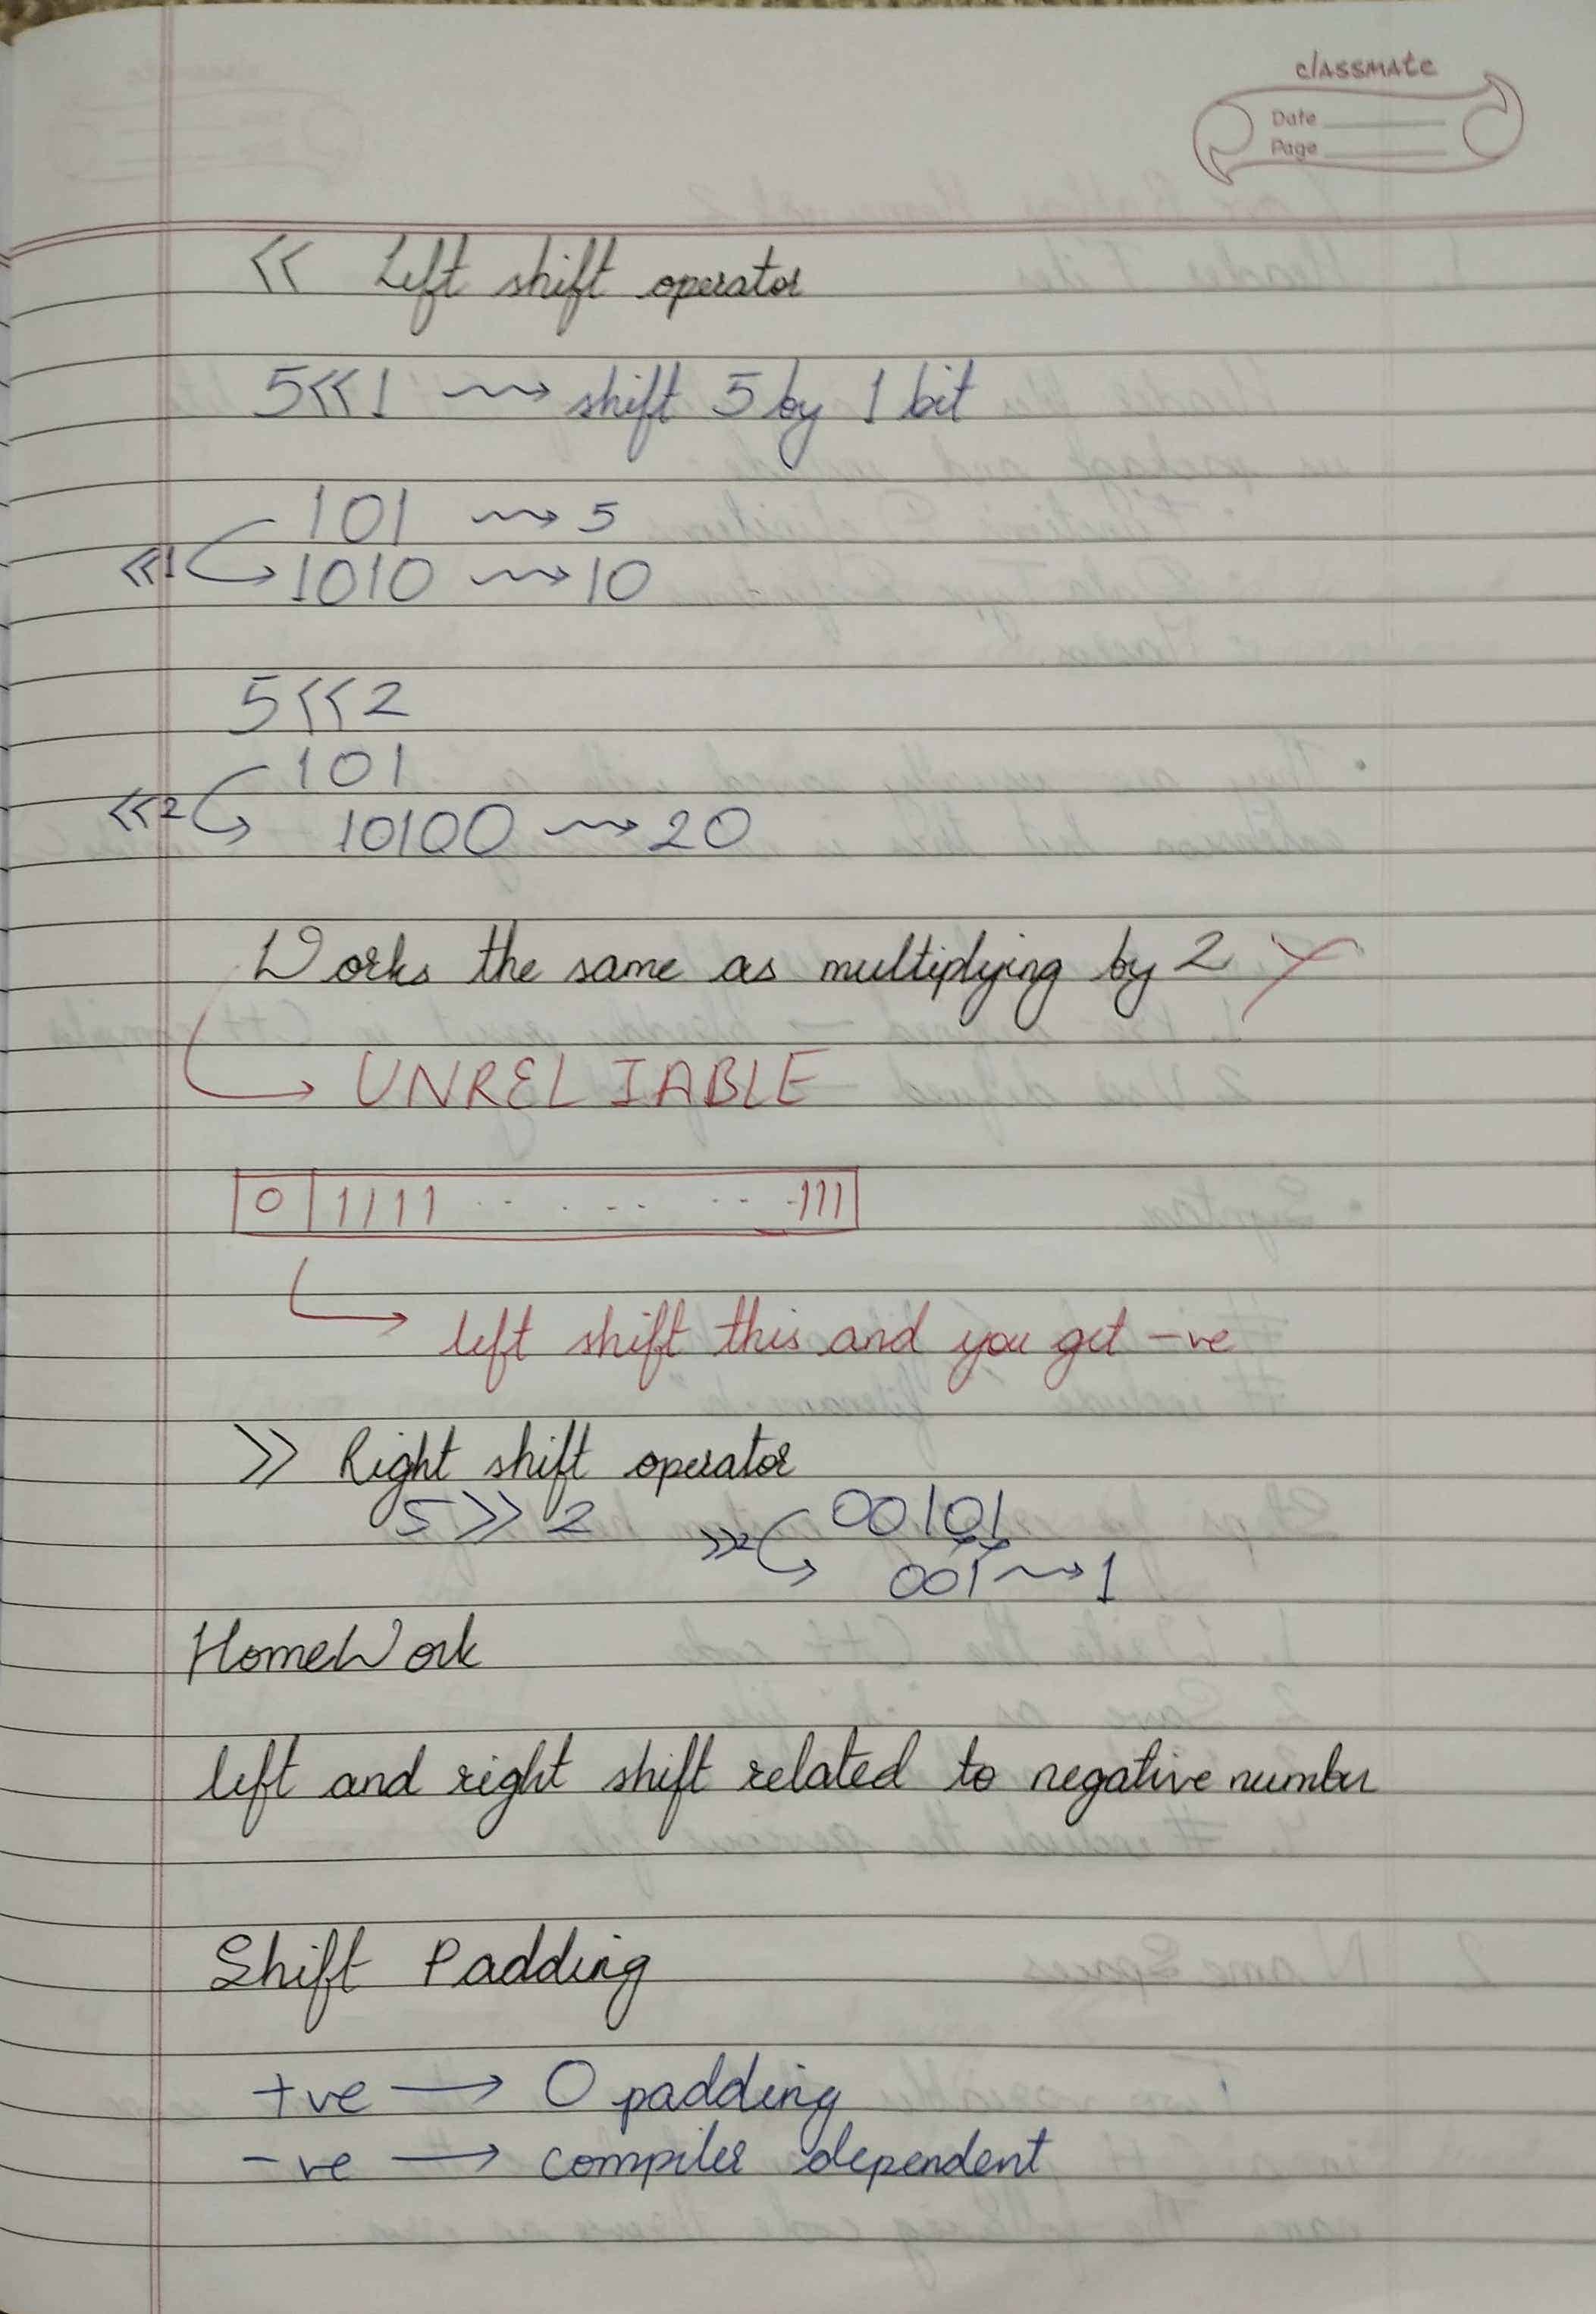 classmate
Date
Page
<< Left shift operator
5<<1 ⟿ shift 5 by 1 bit
101 ⟿ 5
<<1 1010 ⟿ 10
5<<2
101
<<2 10100 ⟿ 20
Works the same as multiplying by 2 ✗
→ UNRELIABLE
0 | 1111 - - . - - - - - 111
→ left shift this and you get -ve
>> Right shift operator
5 >> 2 00101
>>2 001 ⟿ 1
HomeWork
left and right shift related to negative number
Shift Padding
+ve → 0 padding
-ve → compiler dependent